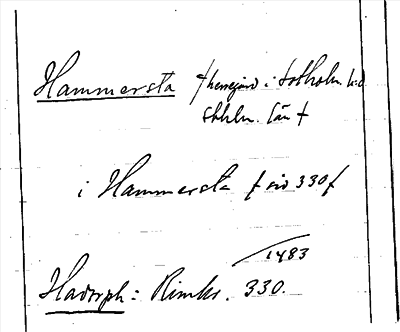 Hammersta † herregård i Sotholm h:d
Sthlm. län †
i Hammersta f sid 330 f
1483
Hadorph: Rimkr. 330.